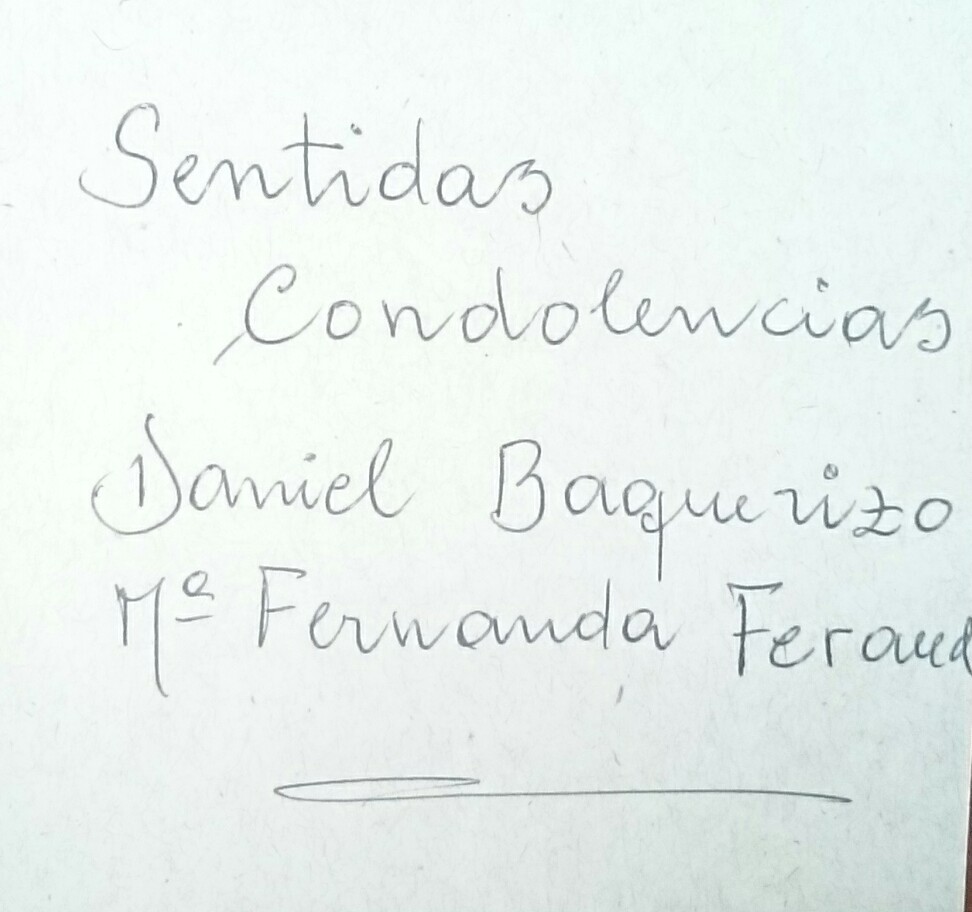 Sentidas
Condolencias
Daniel Baquerizo
Mª Fernanda Feraud